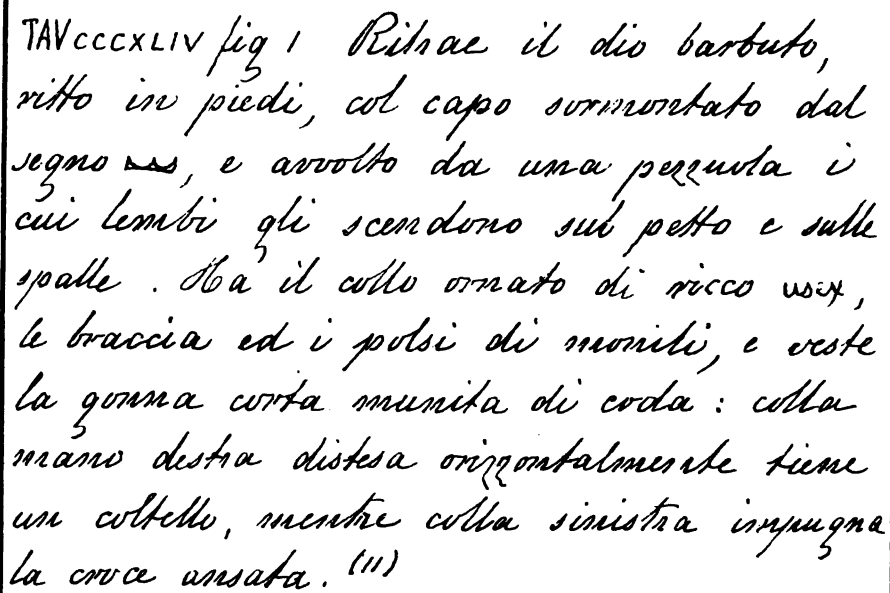 TAV CCCXLIV fig 1 Ritrae il dio barbuto,
ritto in piedi, col capo sormontato dal
segno, e avvolto da una pezzuola i
cui lembi gli scendono sul petto e sulle
spalle. Ha il collo ornato di ricco usex,
le braccia ed i polsi di monili, e veste
la gonna corta munita di coda: colla
mano destra distesa orizzontalmente tiene
un coltello, mentre colla sinistra impugna
la croce ansata. (11)